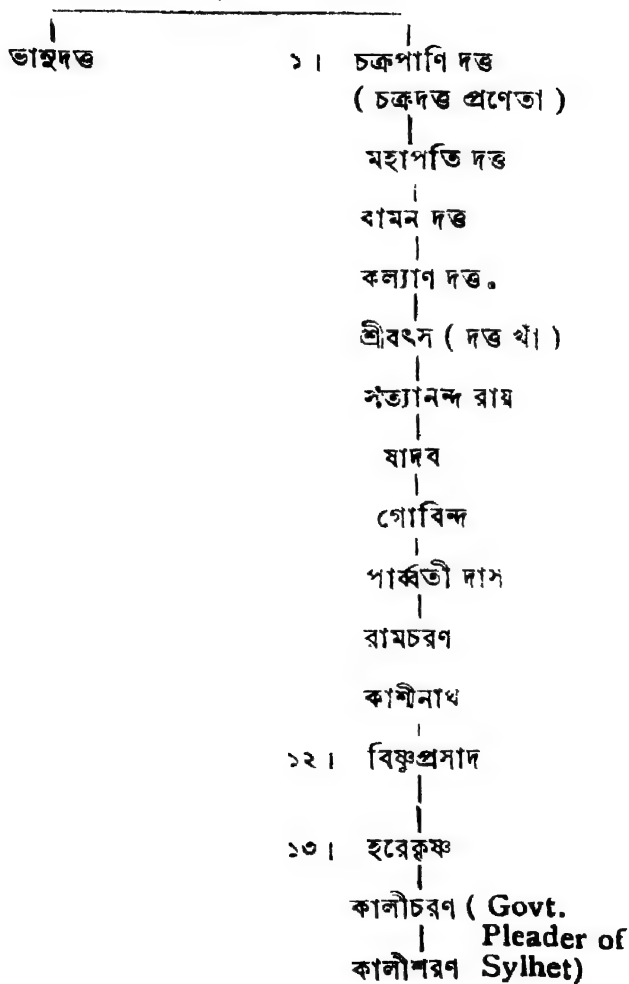 ভানুদত্ত ১। চক্রপাণি দত্ত
( চক্রদত্ত প্রণেতা )
মহাপতি দত্ত
বামন দত্ত
কল্যাণ দত্ত।
শ্রীবৎস ( দত্ত খাঁ )
সত্যানন্দ রায়
যাদব
গোবিন্দ
পার্ব্বতী দাস
রামচরণ
কাশীনাথ
১২। বিষ্ণুপ্রসাদ
১৩। হরেকৃষ্ণ
কালীচরণ ( Govt.
Pleader of
কালীশরণ Sylhet)